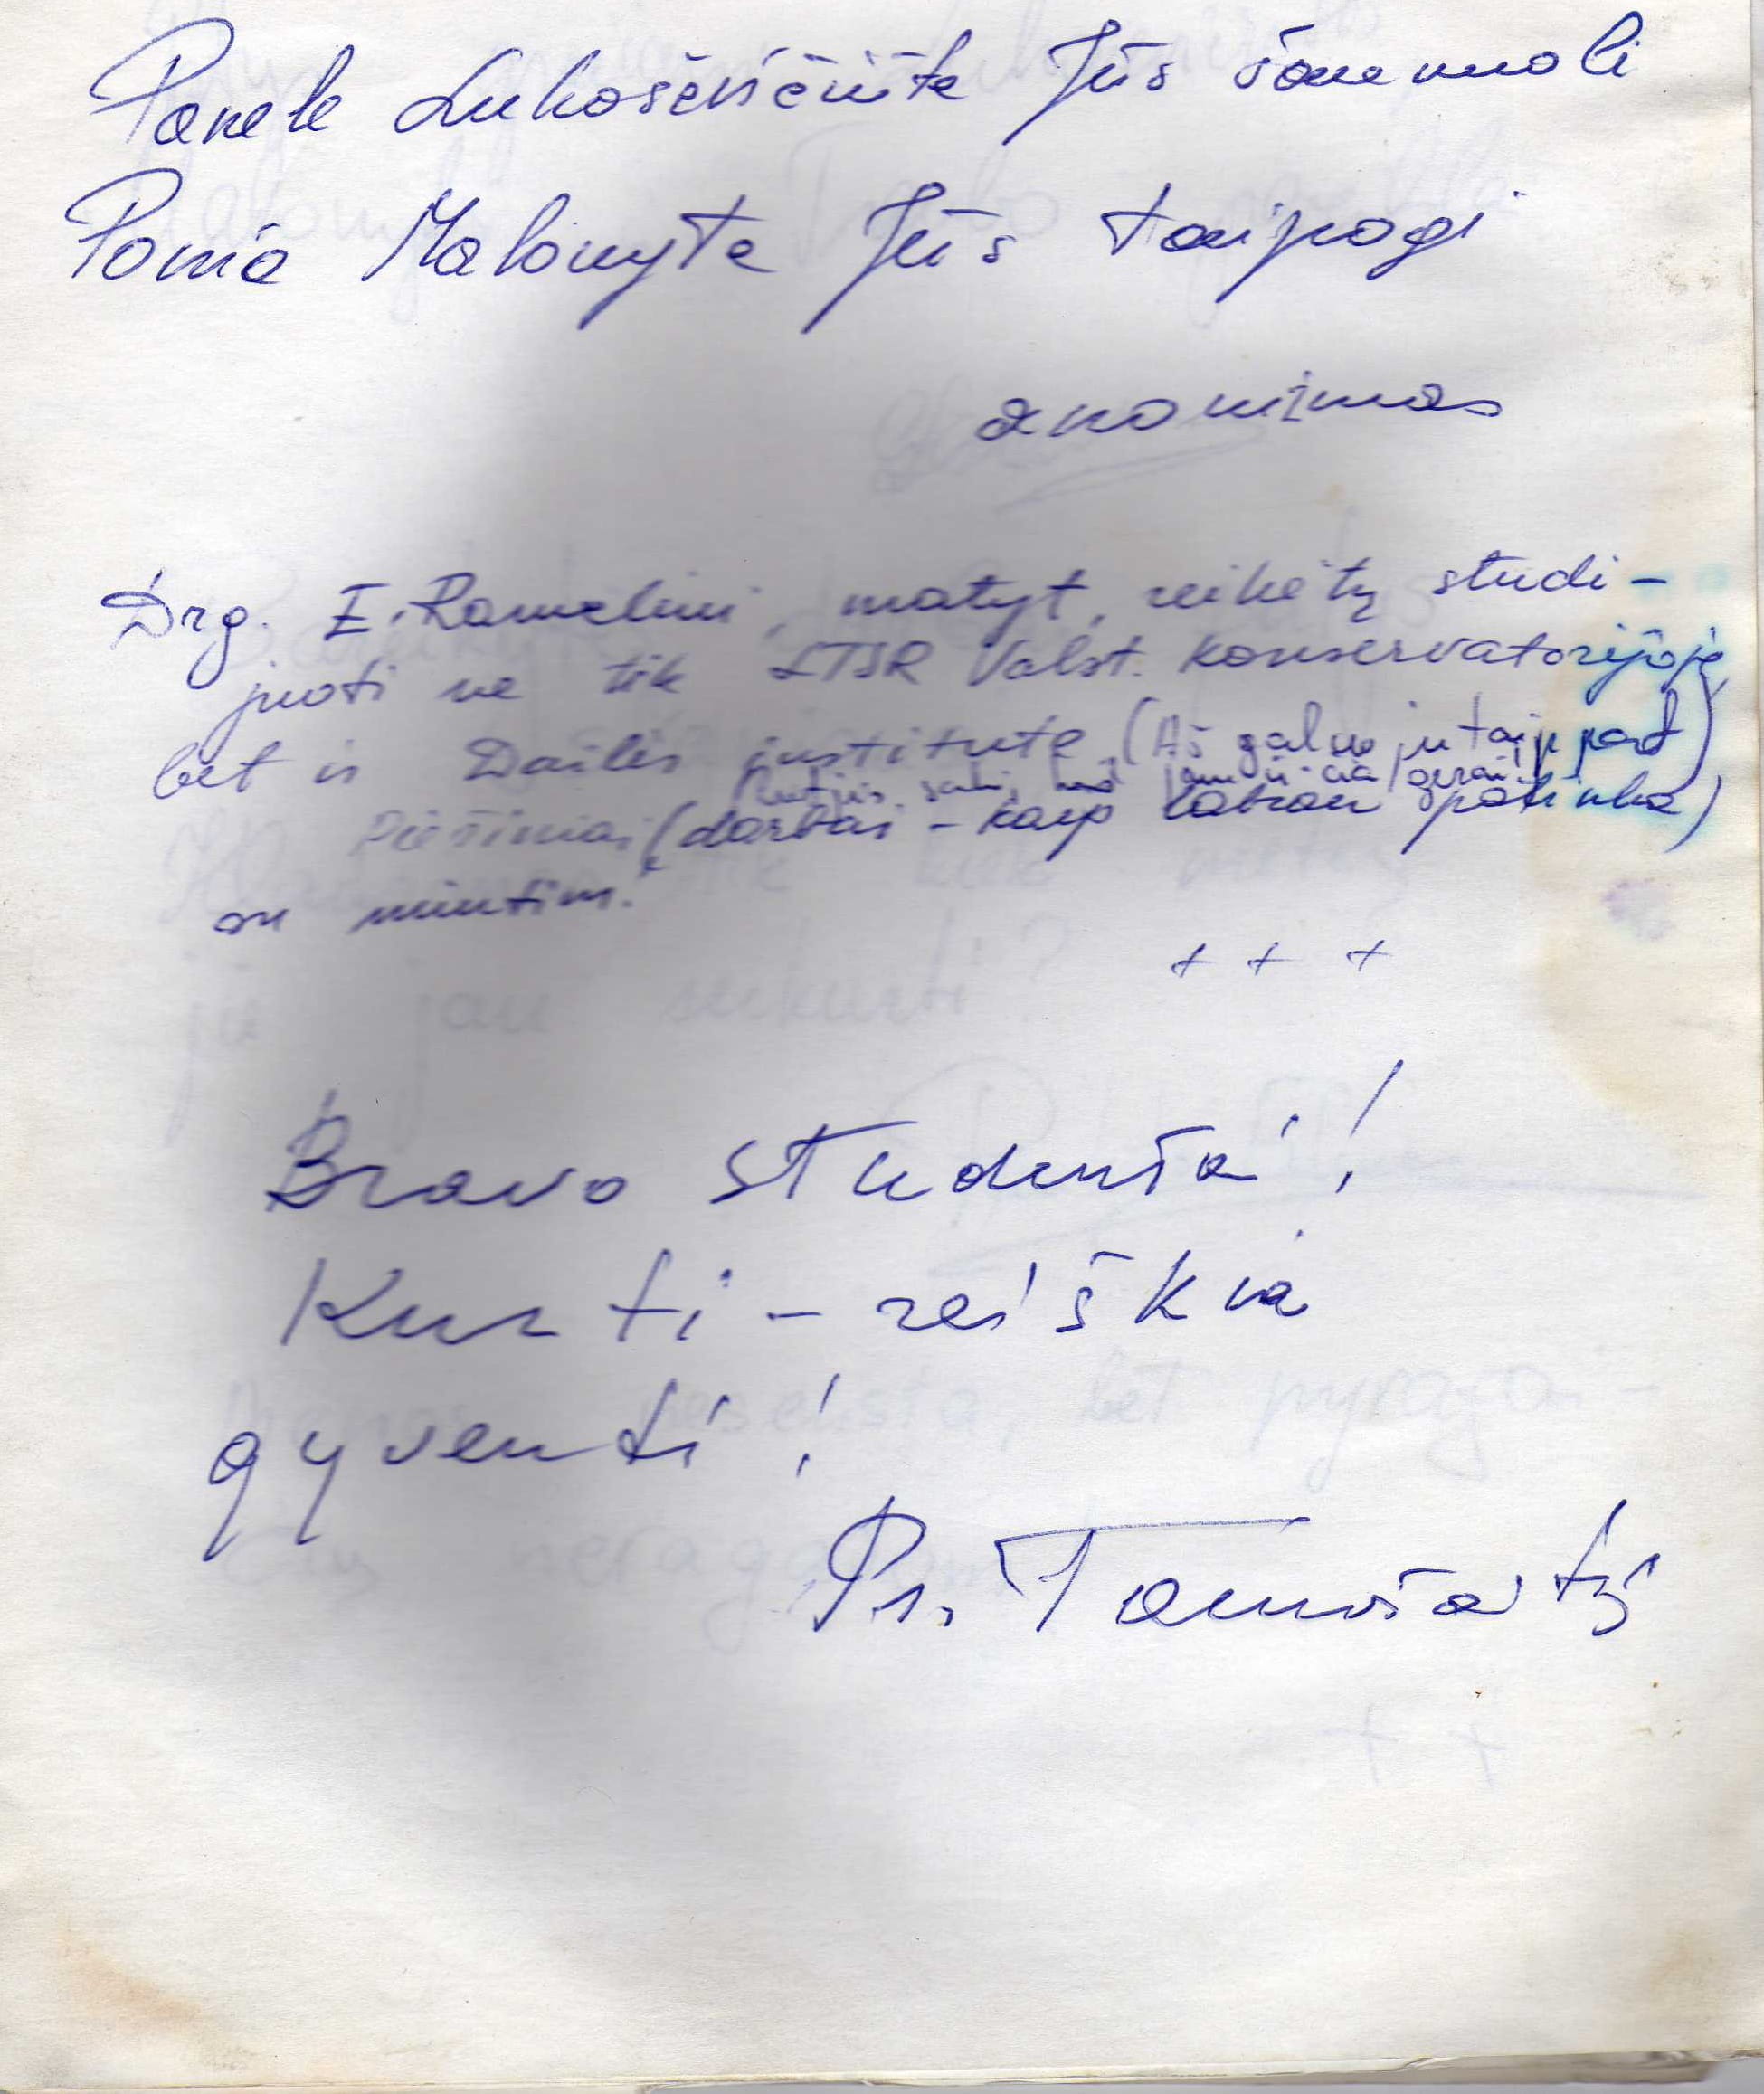 Panele Lukoševičiūte Jūs šaunuoli
Ponia Malonyte Jūs taipogi
anonimas
Drg. E. Ramelini, matyt, reikėtų studi-
juoti ne tik LTSR Valst. konservatorijoje,
bet ir Dailės institute (Aš galvoju taip pat)
sako, kad jam ir čia gerai.
Piešiniai (darbai - kaip labiau patinka)
su mintim.
+ + +
Bravo studentai!
Kurti - reiškia
gyventi!
Pr. Tamošaitį